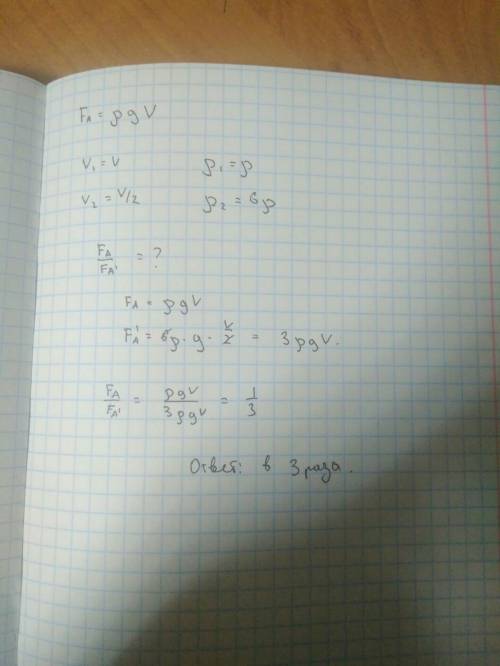 F_A = ρ g V
V₁ = V ρ₁ = ρ
V₂ = V/2 ρ₂ = 6ρ
F_A / F_A' = ?
F_A = ρ g V
F_A' = 6ρ · g · V/2 = 3 ρ g V.
F_A / F_A' = ρ g V / 3 ρ g V = 1/3
Ответ: в 3 раза.